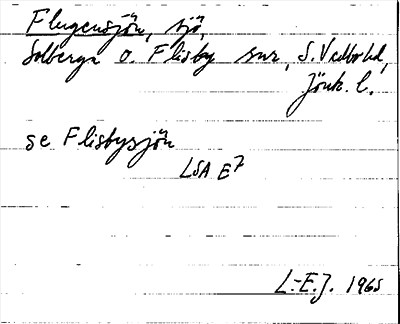 Flugensjön, sjö,
Solberga o. Flisby snr, S. Vedbo hd,
Jönk. l.
se Flisbysjön
LSA E7
L.-E.J. 1965